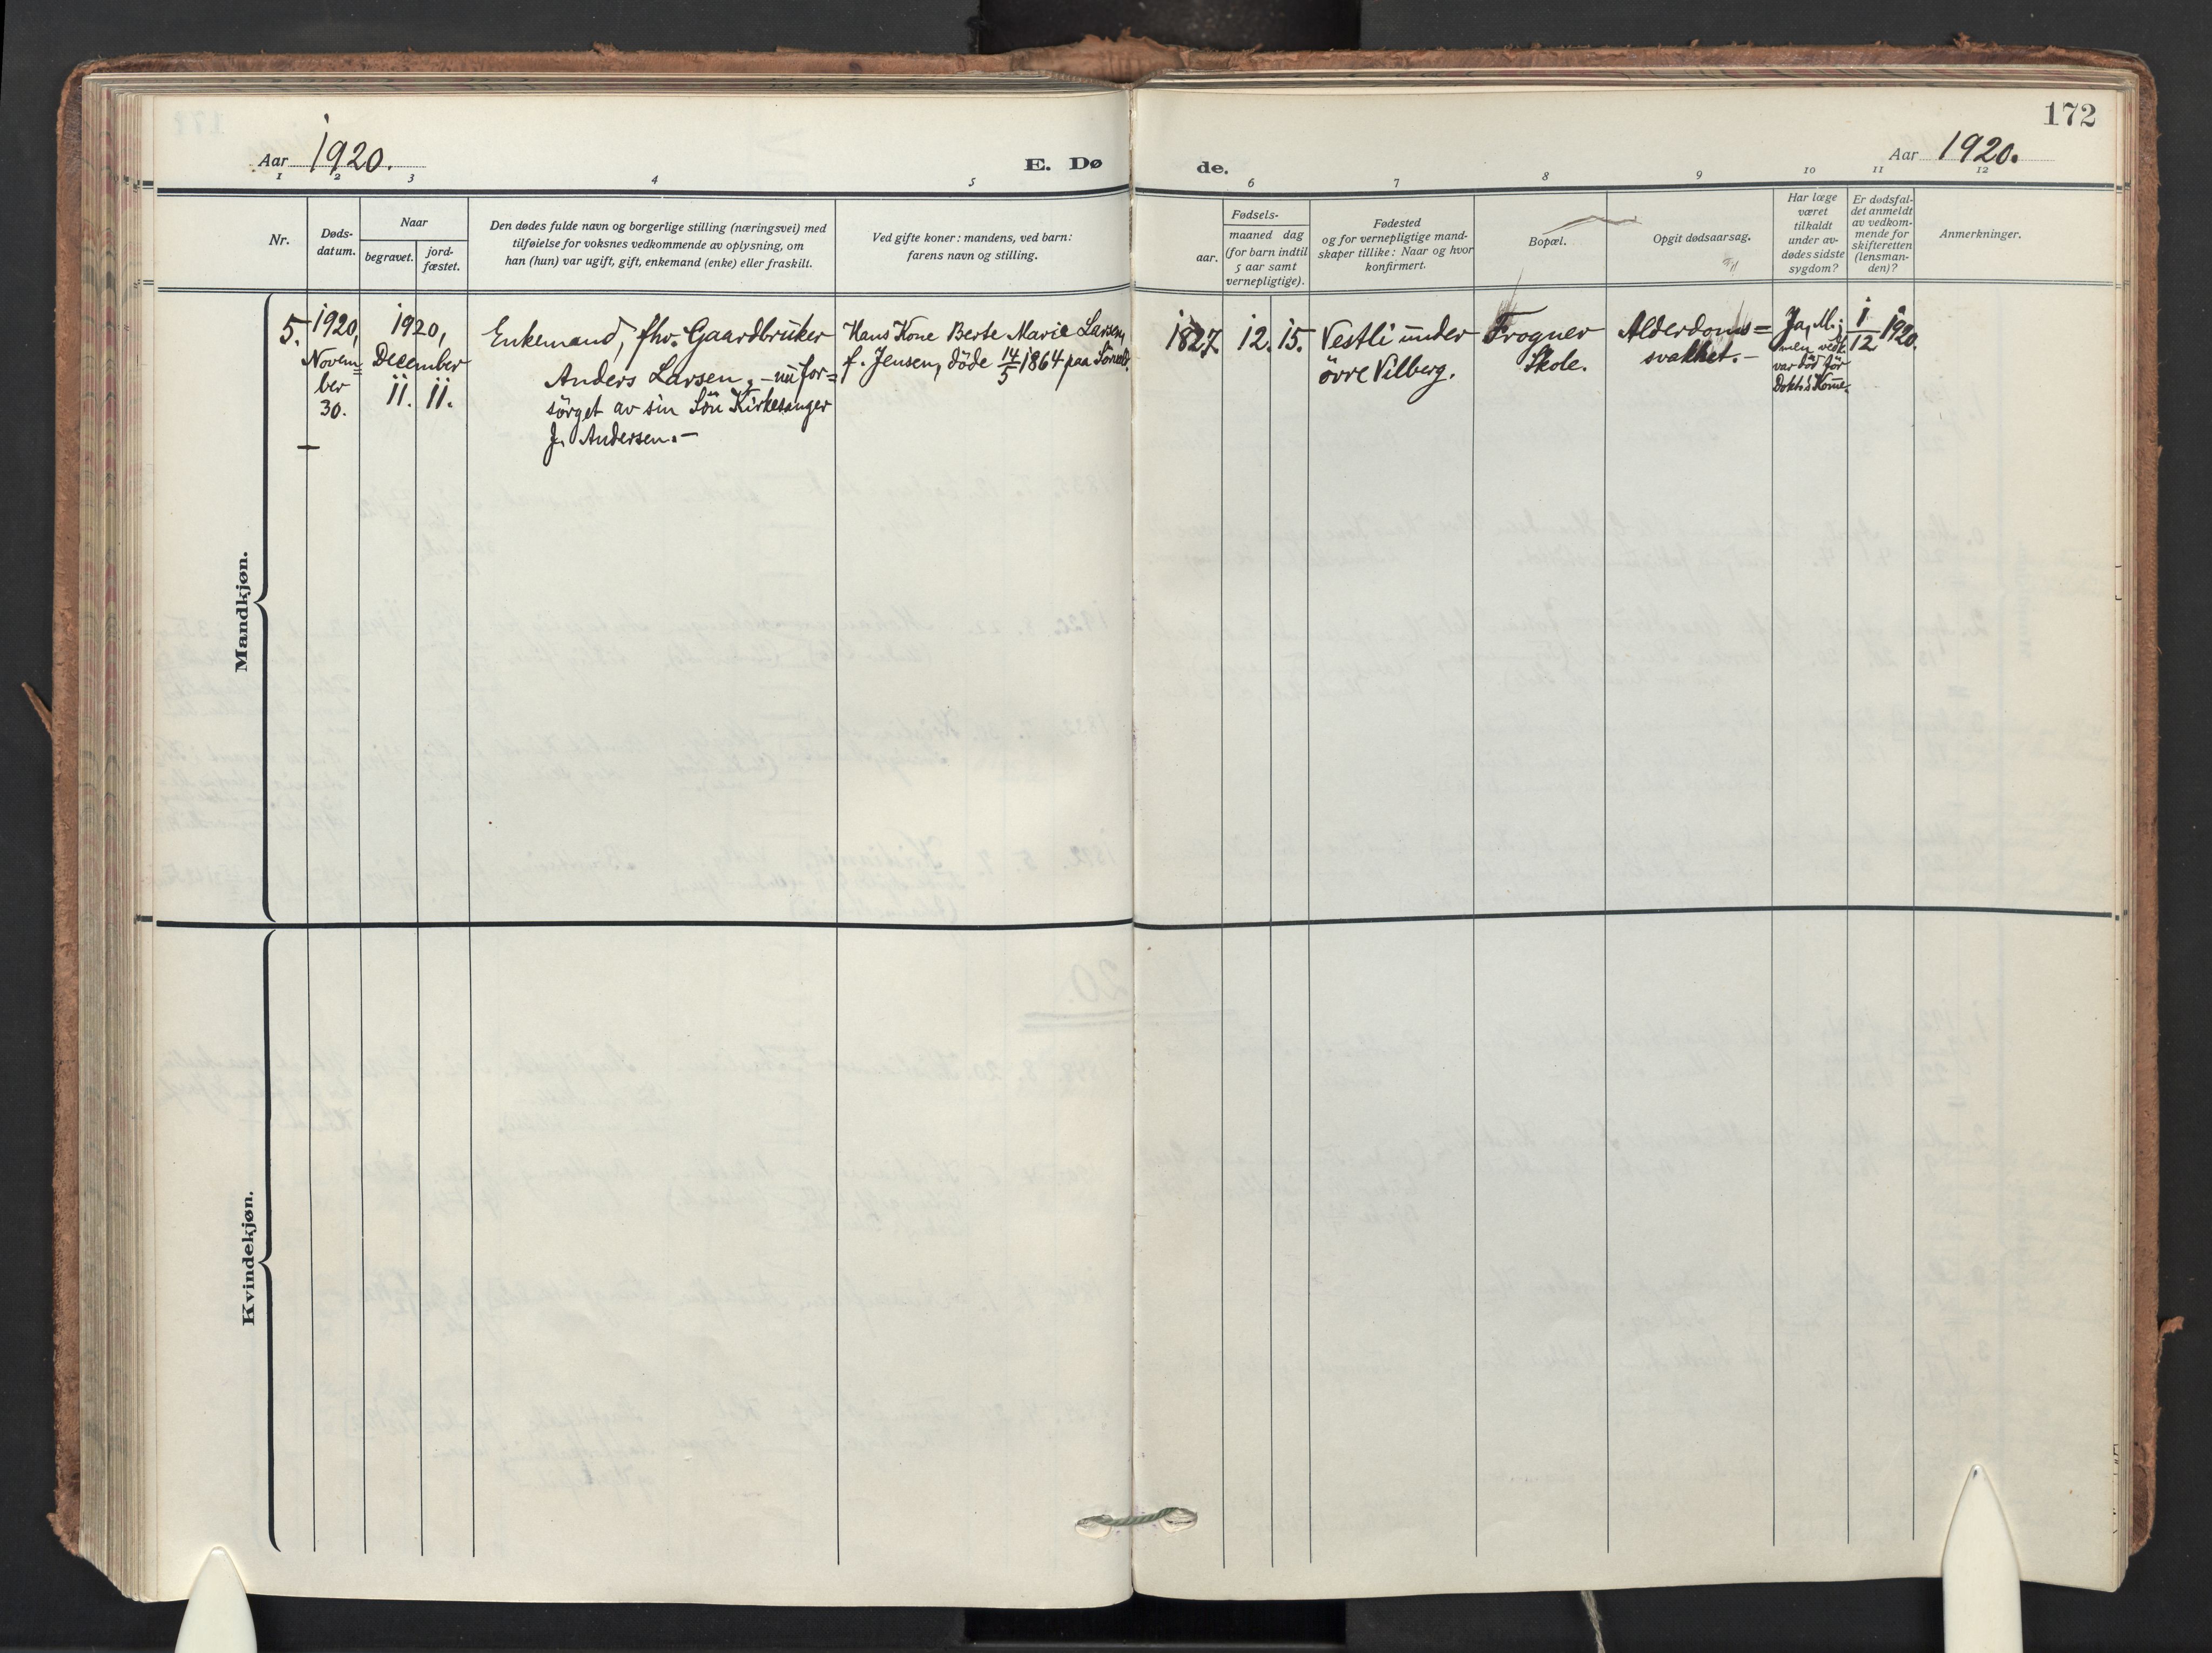 172
Aar 1920.
E. Dø
de.
Aar 1920.
1 2 3 4 5 6 7 8 9 10 11 12
Nr.
Døds-
datum.
Naar
begravet.
jord-
fæstet.
Den dødes fulde navn og borgerlige stilling (næringsvei) med
tilføielse for voksnes vedkommende av oplysning, om
han (hun) var ugift, gift, enkemand (enke) eller fraskilt.
Ved gifte koner: mandens, ved barn:
farens navn og stilling.
Fødsels-
aar.
maaned dag
(for barn indtil
5 aar samt
vernepligtige).
Fødested
og for vernepligtige mand-
skaper tillike: Naar og hvor
konfirmert.
Bopæl.
Opgit dødsaarsag.
Har læge
været
tilkaldt
under av-
dødes sidste
sygdom?
Er dødsfal-
det anmeldt
av vedkom-
mende for
skifteretten
(lensman-
den)?
Anmerkninger.
Mandkjøn.
5.
1920,
Novem=
ber
30.
1920,
December
11. 11.
Enkemand, fhv. Gaardbruker
Anders Larsen, - nu for=
sörget av sin Sön Kirkesanger
J. Andersen. -
Hans Kone Berte Marie Larsen,
f. Jensen, döde 14/5 1864 paa
1827. 12. 15.
Vestli under
övre Vilberg.
Frogner
Skole.
Alderdoms=
svakhet. -
Ja, M.;
men vedk.
var död för
Dokt's Komme.
1/12 1920.
Kvindekjøn.